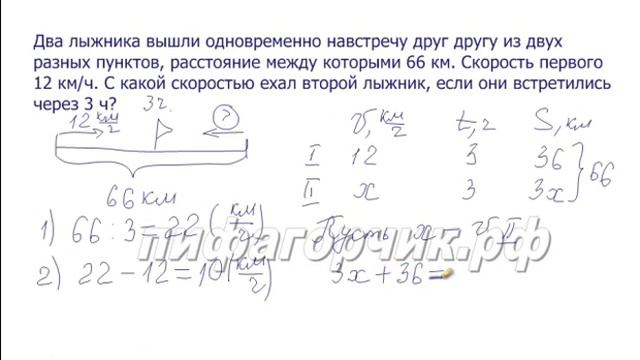 Два лыжника вышли одновременно навстречу друг другу из двух
разных пунктов, расстояние между которыми 66 км. Скорость первого
12 км/ч. С какой скоростью ехал второй лыжник, если они встретились
через 3 ч?
3 ч.
12 км/ч ?
66 км
v, км/ч t, ч S, км
I 12 3 36
II x 3 3x
66
1) 66 : 3 = 22 (км/ч)
2) 22 − 12 = 10 (км/ч)
Пусть x v II
3x + 36 =
пифагорчик.рф